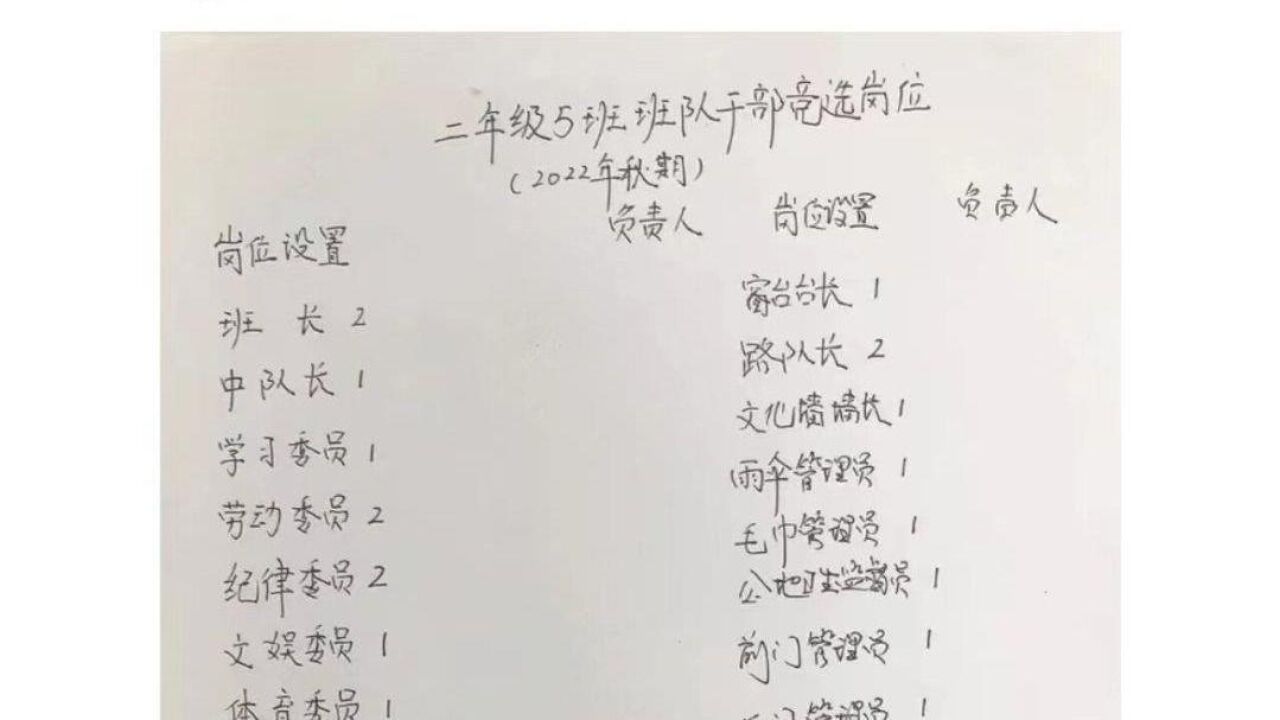 二年级5班班队干部竞选岗位
(2022年秋期)
岗位设置 负责人 岗位设置 负责人
班 长 2
中队长 1
学习委员 1
劳动委员 2
纪律委员 2
文娱委员 1
体育委员 1
窗台台长 1
路队长 2
文化墙墙长 1
雨伞管理员 1
毛巾管理员 1
公地卫生监督员 1
前门管理员 1
门管理员 1